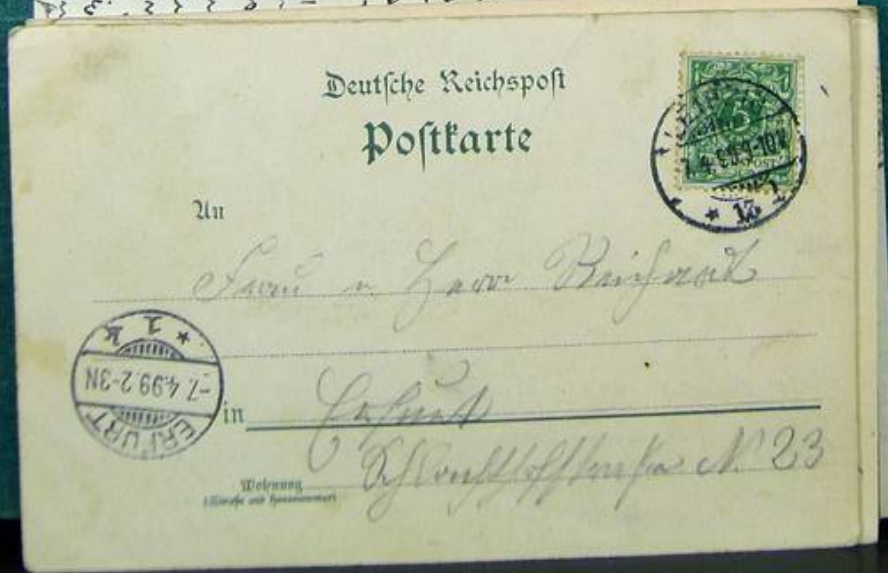 Deutsche Reichspost
Postkarte
An
Frau u. Herr Reichardt
in Erfurt
Wohnung
(Straße und Hausnummer)
Schlachthofstraße N° 23
7.4.99.9-10V
* 13
ERFURT
-7.4.99.2-3N
* 1 k